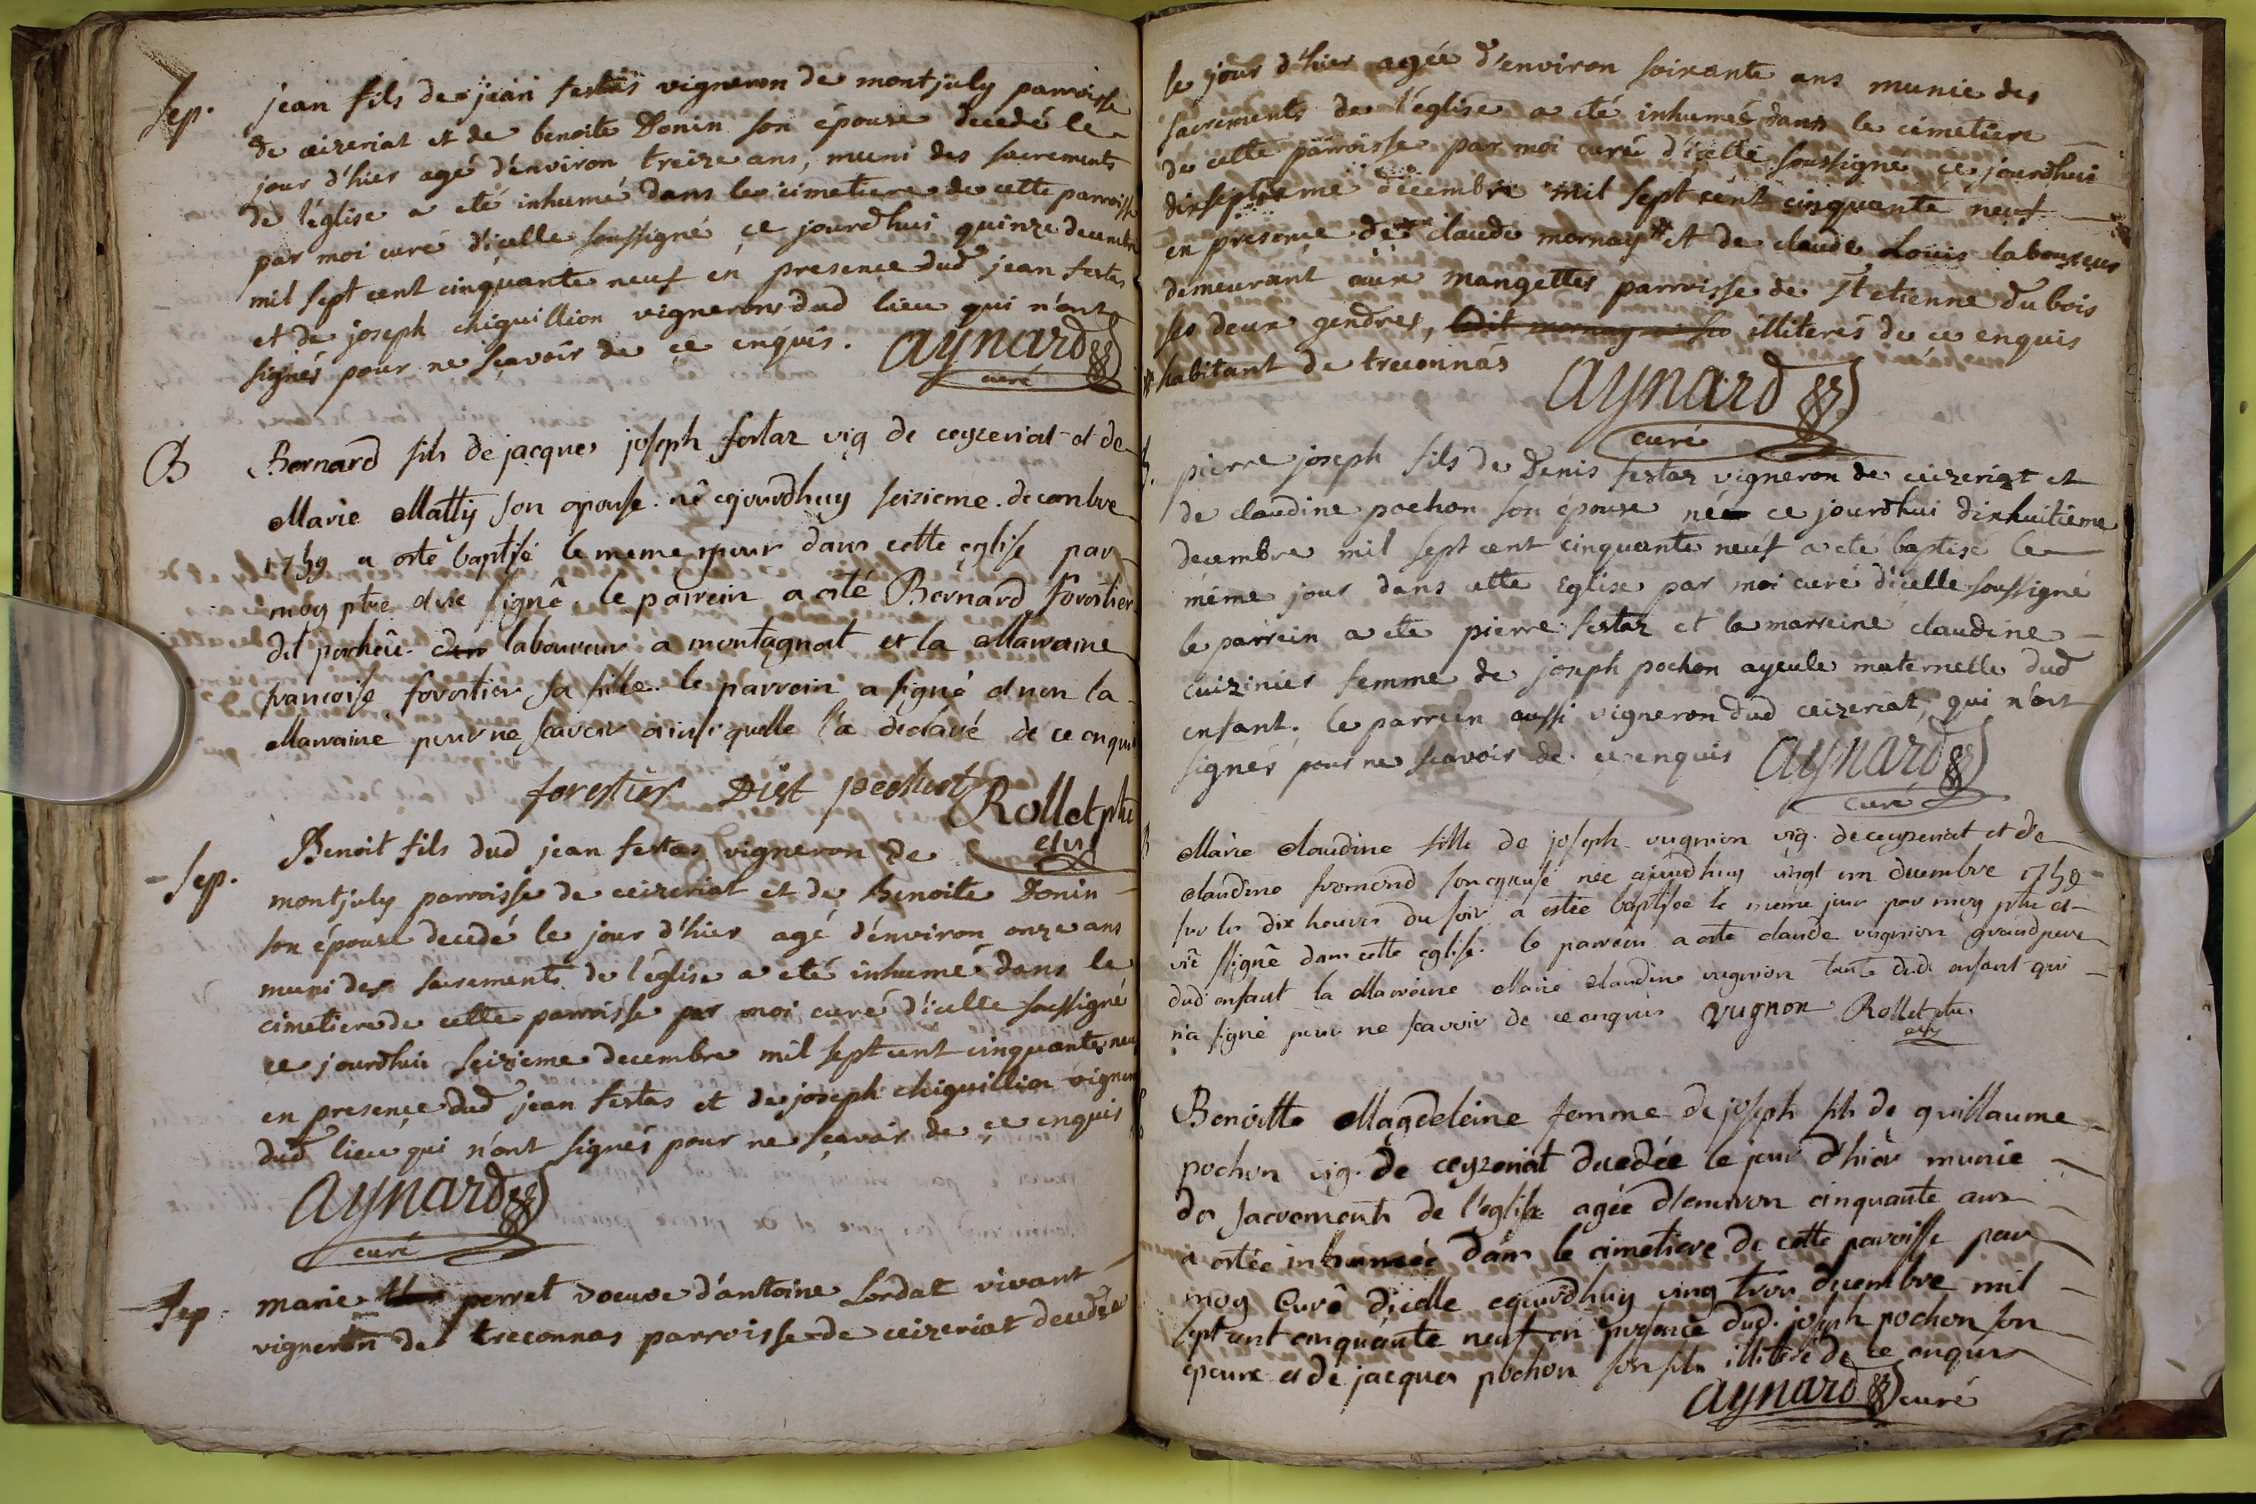 Sep. jean fils de jean festas vigneron de montjuly parroisse
de ceizeriat et de benoite Donin son épouse decedé le
jour d'hier agé d'environ treize ans, muni des sacrements
de l'église a eté inhumé dans le cimetiere de cette parroisse
par moi curé d'icelle soussigné ce jourdhui quinze decembre
mil sept cent cinquante neuf en presence dud jean festas
et de joseph chiguillion vignerons dud lieu qui n'ont
signés pour ne sçavoir de ce enquis. aynard
curé
B Bernard fils de jacques joseph festaz vig de ceyzeriat et de
Marie Matty son epouse né cejourdhuy seizieme decembre
1759 a esté baptisé le meme jour dans cette eglise par
moy ptre et vic signé, le parrein a esté Bernard forestier
dit pochet laboureur a montagnat et la Marraine
francoise forestier sa fille. le parrein a signé et non la
Marraine pour ne scavoir ainsi quelle l'a declaré de ce enquis
forestier Dist pochet Rollet ptre
et vic
Sep. Benoit fils dud jean festas vigneron de
montjuly parroisse de ceizeriat et de benoite Donin
son épouse decedé le jour d'hier agé d'environ onze ans
muni des sacrements de l'église a eté inhumé dans le
cimetiere de cette parroisse par moi curé d'icelle soussigné
ce jourdhui seizieme decembre mil sept cent cinquante neuf
en presence dud jean festas et de joseph chiguillion vigneron
dud lieu qui n'ont signés pour ne sçavoir de ce enquis
aynard
curé
Sep. marie perret voeuve d'antoine Lordat vivant
vigneron de treconnas parroisse de ceizeriat decedée
le jour d'hier agée d'environ soixante ans munie des
sacrements de l'église a eté inhumée dans le cimetiere
de cette parroisse par moi curé d'icelle soussigné ce jourdhui
dixseptieme decembre mil sept cent cinquante neuf
en presence de claude mornay # et de claude Louis laboureur
demeurant aux mangettes parroisse de st etienne du bois
ses deux gendres, ledit mornay illiterés de ce enquis
# habitant de treconnas
aynard
curé
B. pierre joseph fils de Denis festaz vigneron de ceizeriat et
de claudine pochon son épouse né ce jourdhui dixhuitieme
decembre mil sept cent cinquante neuf a eté baptisé le
même jour dans cette Eglise par moi curé d'icelle soussigné
le parrein a eté pierre festaz et la marreine claudine
cuizinier femme de joseph pochon ayeule maternelle dud
enfant. le parrein aussi vigneron dud ceizeriat, qui n'ont
signés pour ne scavoir de ce enquis aynard
curé
B Marie claudine fille de joseph vugnion vig. de ceyzeriat et de
claudine fromond son epouse née cejourdhuy vingt un decembre 1759
sur les dix heures du soir a estée baptisée le meme jour par moy ptre et
vic ssigné dans cette eglise. le parrein a esté claude vugnion grand pere
dud enfant la Marraine Marie claudine vugnion tante dud. enfant qui
n'a signé pour ne scavoir de ce enquis vugnon Rollet ptre
et vic
Benoitte Magdeleine femme de joseph fils de guillaume
pochon vig. de ceyzeriat decedée le jour d'hier munie
des sacrements de l'eglise agée d'environ cinquante ans
a estée inhumée dans le cimetiere de cette paroisse par
moy Curé d'icelle cejourdhuy vingt trois decembre mil
sept cent cinquante neuf en presence dud. joseph pochon son
epoux et de jacques pochon son fils illiteré de ce enquis
aynard curé